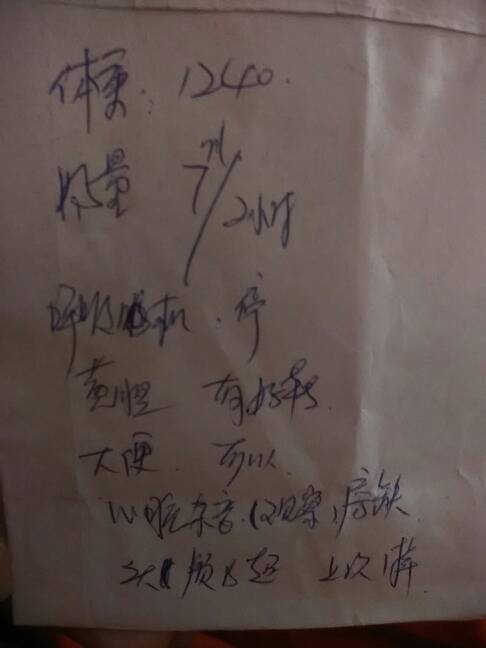 体重: 1240.
奶量 7ml/2小时
呼吸机. 停
黄胆 有好转
大便. 可以
心脏杂音.(观察,房缺
头颅B超 上次